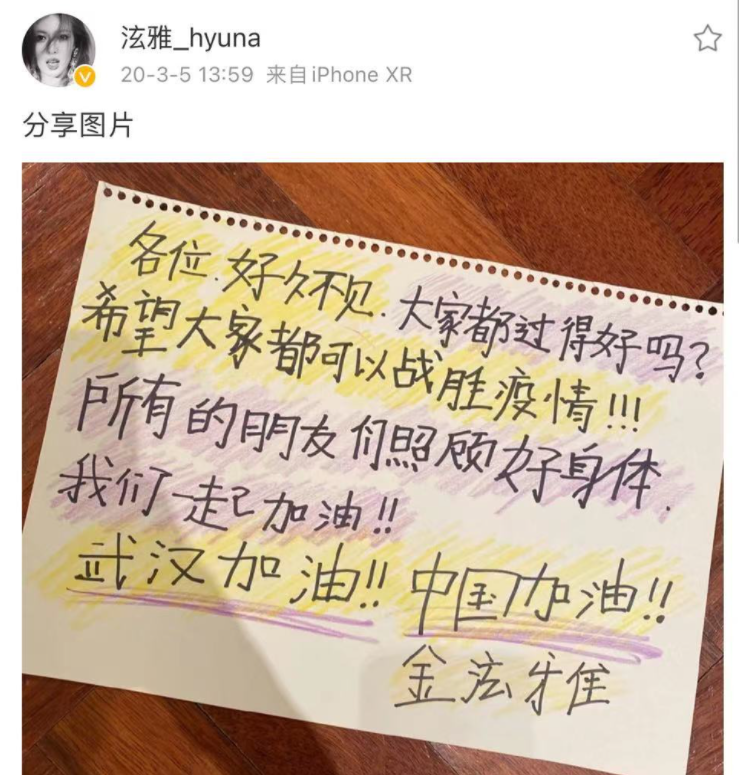 泫雅_hyuna
20-3-5 13:59 来自iPhone XR
分享图片
各位.好久不见.大家都过得好吗?
希望大家都可以战胜疫情!!!
所有的朋友们照顾好身体.
我们一起加油!!
武汉加油!! 中国加油!!
金泫雅